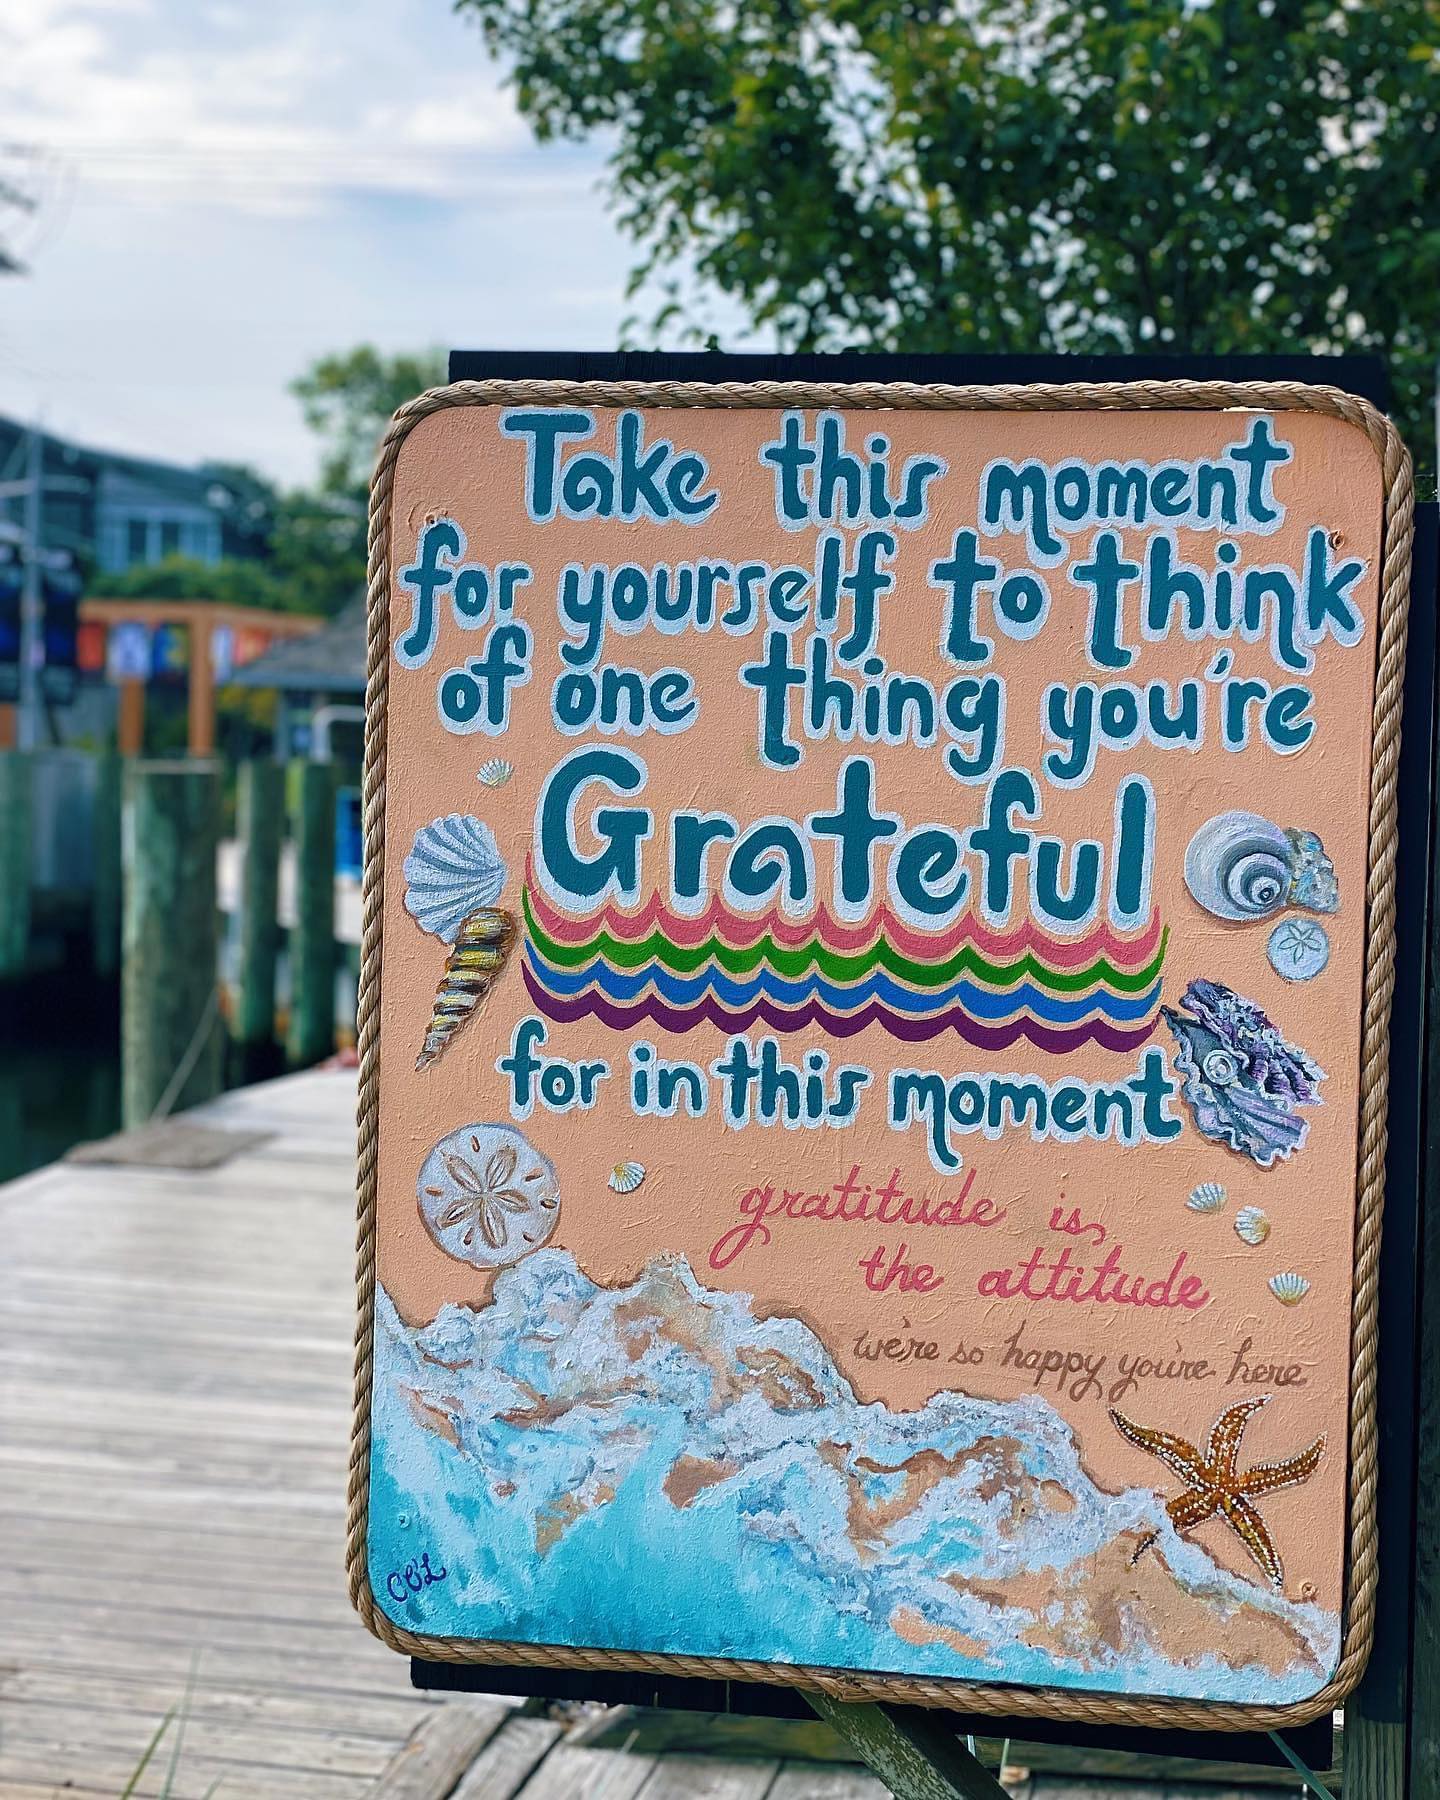 Take this moment
for yourself to think
of one thing you're
Grateful
for in this moment
gratitude is
the attitude
we're so happy you're here